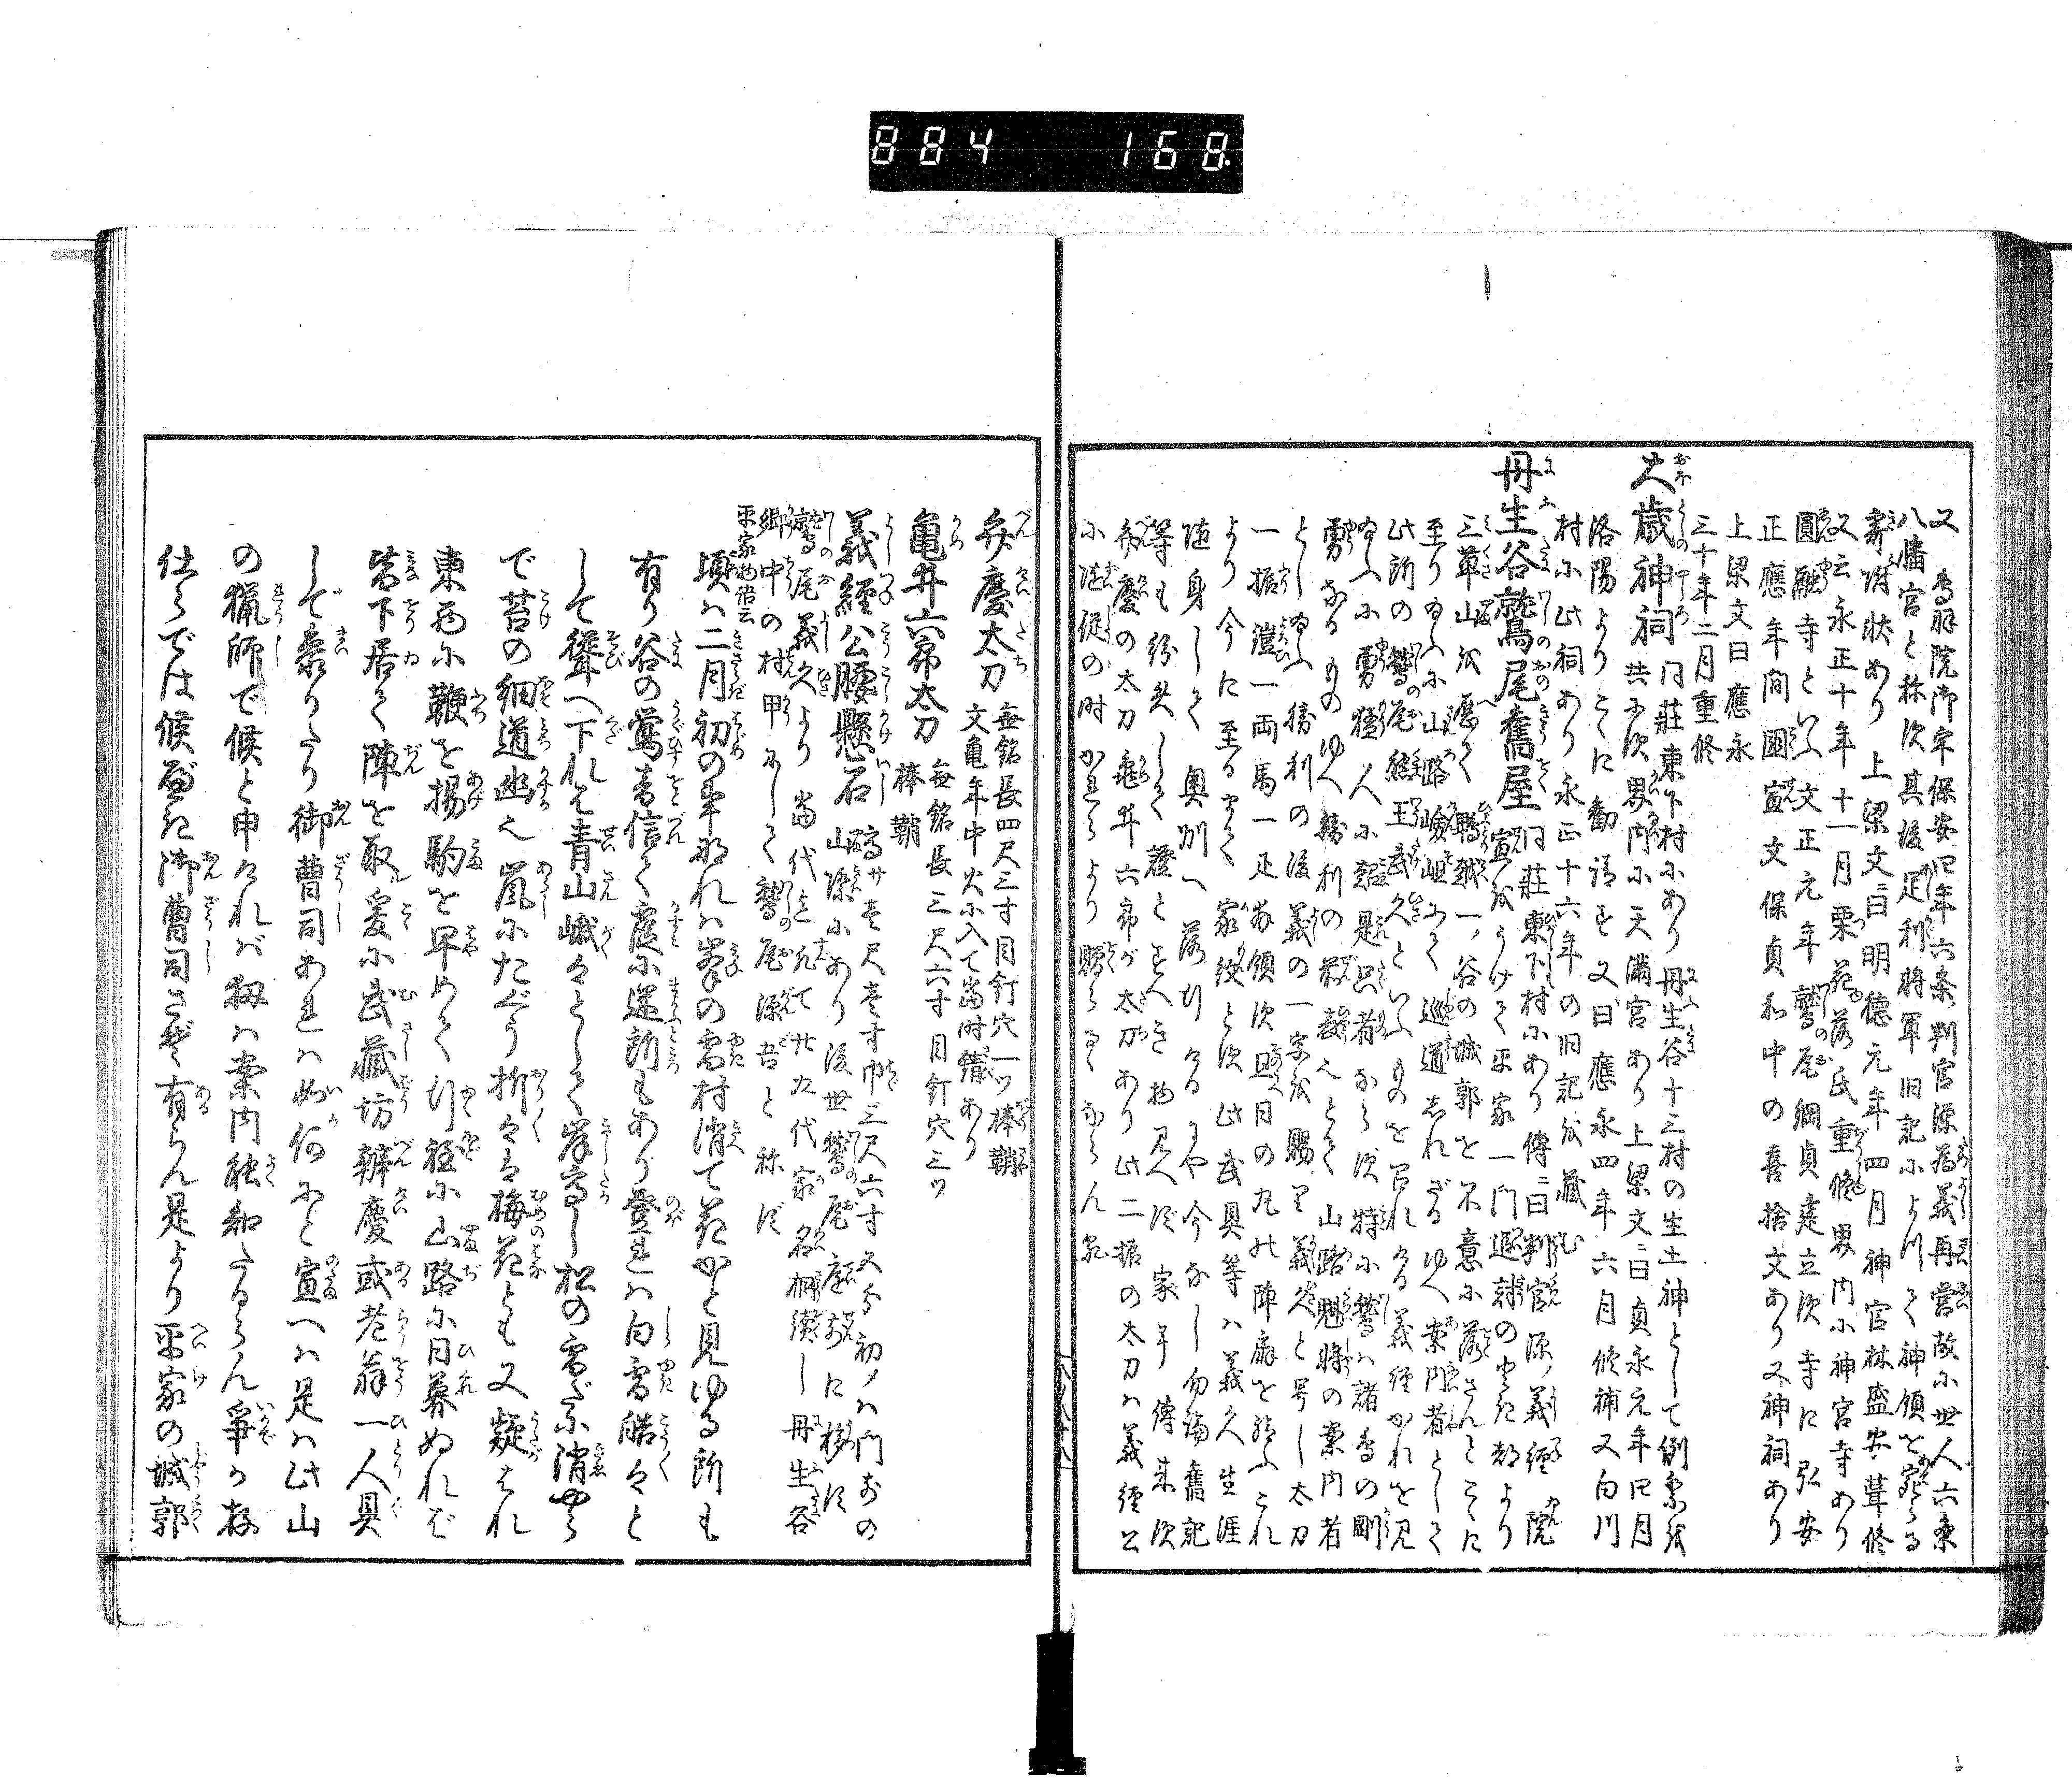 884 168
又鳥羽院御宇保安四年六条判官源為義再営故に世人六条
八幡宮と称次其後足利将軍旧記によつて神領を寄らる
寄附状あり上梁文ニ曰明徳元年四月神官林盛安葺修
又云永正十年十一月栗花落氏重修界内に神宮寺あり
圓融寺といふ文正元年鷲尾綱貞建立次寺に弘安
正應年間國宣文保貞和中の喜捨文あり又神祠あり
上梁文曰應永
三十年二月重修
大歳神祠 同荘東下村にあり丹生谷十三村の生土神として例祭を
共に次界内に天満宮あり上梁文ニ曰貞永元年四月
洛陽よりこゝに勧請す又曰應永四年六月修補又白川
村に此祠あり永正十六年の旧記を蔵む
丹生谷鷲尾舊屋 同荘東下村にあり傳ニ曰判官源ノ義經院
宣をうけて平家一門追討のとき都より
三草山を歴て鵯越一ノ谷の城郭を不意に落さんとこゝに
至り給ふに山路嶮岨にて巡道しれざるゆへ案内者として
此所の鷲尾熊王武久といふものを召れける義經かれを見
給ふに勇猛人に超是只者ならず特に鷲ハ諸鳥の剛
勇なるものゆへ勝利の瑞といふとて山路魁時の案内者
とし給ふ勝利の後義の一字を賜て義久と号し太刀
一振鎧一両馬一疋拝領次且日の丸の陣扇を給ふこれ
より今に至るまで家紋と次此武具等ハ義久生涯
随身して奥州へ落行けるにや今なし勿論舊記
等も紛失して證とすへき物見へず家年傳来次
弁慶の太刀亀井六郎が太刀あり此二振の太刀ハ義經公
に随従の時かれらより贈らるゝならん
弁慶太刀 無銘長四尺三寸目釘穴一ツ棒鞘
文亀年中火に入て當時𦾔あり
亀井六郎太刀 無銘長三尺六寸目釘穴三ツ
棒鞘
義經公腰懸石 高サ壱尺壱寸巾三尺六寸又今初メハ門前の
山際にあり後世鷲尾庭前に移す
鷲尾義久より當代迄凡て廿九代家名相續し丹生谷
郷中の村甲にして鷲尾源吾と称ず
平家物語云
頃ハ二月初の事なれハ峯の雪村消て花かと見ゆる所も
有り谷の鶯音信て霞に迷所もあり登れハ白雲皓々と
して聳へ下れは青山峨々として岸高し松の雪だに消やら
で苔の細道幽也嵐にたぐう折々は梅花とも又疑はれ
東西に鞭を揚駒を早めて行程に山路に日暮ぬれば
皆下居て陣を取爰に武蔵坊辨慶或老翁一人具
して参りたり御曹司あれハ如何にと宣へハ是ハ此山
の猟師で候と申ければ扨ハ案内能知たるらん争か存
仕らでは候べき御曹司さぞ有らん是より平家の城郭